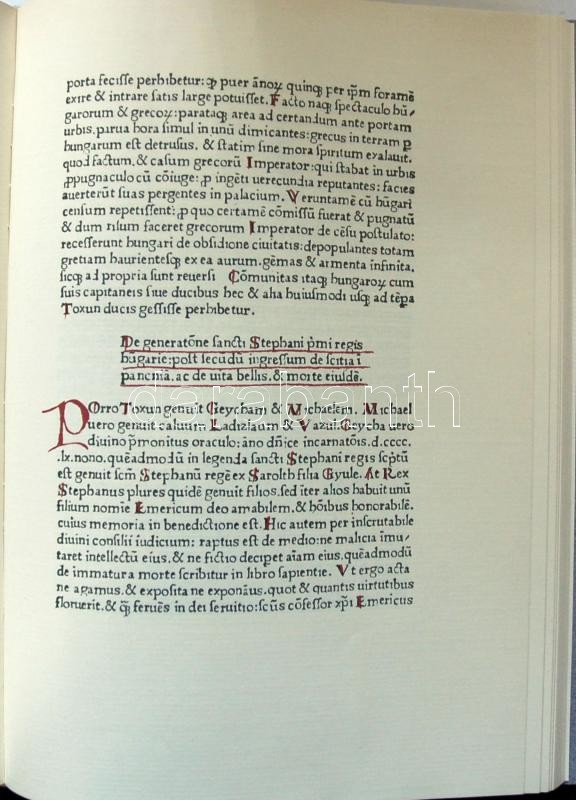 porta fecisse perhibetur: ꝙ puer ãnoꝝ quinqꝫ per ip̃m foramẽ
exire & intrare satis large potuisset. Facto naqꝫ spectaculo bũ/
garorum & grecoꝝ: parataqꝫ area ad certandum ante portam
urbis. parua hora simul in unũ dimicantes: grecus in terram ꝑ
hungarum est detrusus. & statim sine mora spiritum exalauit.
quod factum. & casum grecorũ Imperator: qui stabat in urbis
ꝓpugnaculo cũ cõiuge: ꝓ ingẽti uerecundia reputantes: facies
auerterũt suas pergentes in palacium. Veruntamẽ cũ hũgari
censum repetissent: ꝓ quo certamẽ cõmissũ fuerat & pugnatũ
& dum risum faceret grecorum Imperator de cẽsu postulato:
recesserunt hungari de obsidione ciuitatis: depopulantes totam
gretiam haurientesqꝫ ex ea aurum. gẽmas & armenta infinita.
sicqꝫ ad propria sunt reuersi Cõmunitas itaqꝫ hungaroꝝ cum
suis capitaneis siue ducibus hec & alia huiusmodi usqꝫ ad tẽpa
Toxun ducis gessisse perhibetur.
De generatõne sancti Stephani pͥmi regis
hũgarie: post secũdũ ingressum de scitia ĩ
pañonia. ac de uita bellis. & morte eiusdẽ.
POrro Toxun genuit Geycham & Michaelem. Michael
uero genuit caluum. Ladizlaum & Vazul. Geycha uero
diuino pͥmonitus oraculo: ãno dñice incarnatõis. d.cccc.
.lx. nono. quẽadmodũ in legenda sancti Stephani regis scp̃tũ
est genuit scm̃ Stephanũ regẽ ex Saroltb filia Gyule. At Rex
Stephanus plures quidẽ genuit filios. sed iter alios habuit unũ
filium nomĩe Emericum deo amabilem. & hõibus honorabilẽ.
cuius memoria in benedictione est. Hic autem per inscrutabile
diuini consilii iudicium: raptus est de medio: ne malicia ĩmu/
taret intellectũ eius. & ne fictio decipet aĩam eius. quẽadmodũ
de immatura morte scribitur in libro sapientie. Vt ergo acta
ne agamus. & exposita ne exponãus. quot & quantis uirtutibus
floruerit. & qꝫ feruẽs in dei seruitio: scũs cõfessor xp̃i Emericus
darabanth